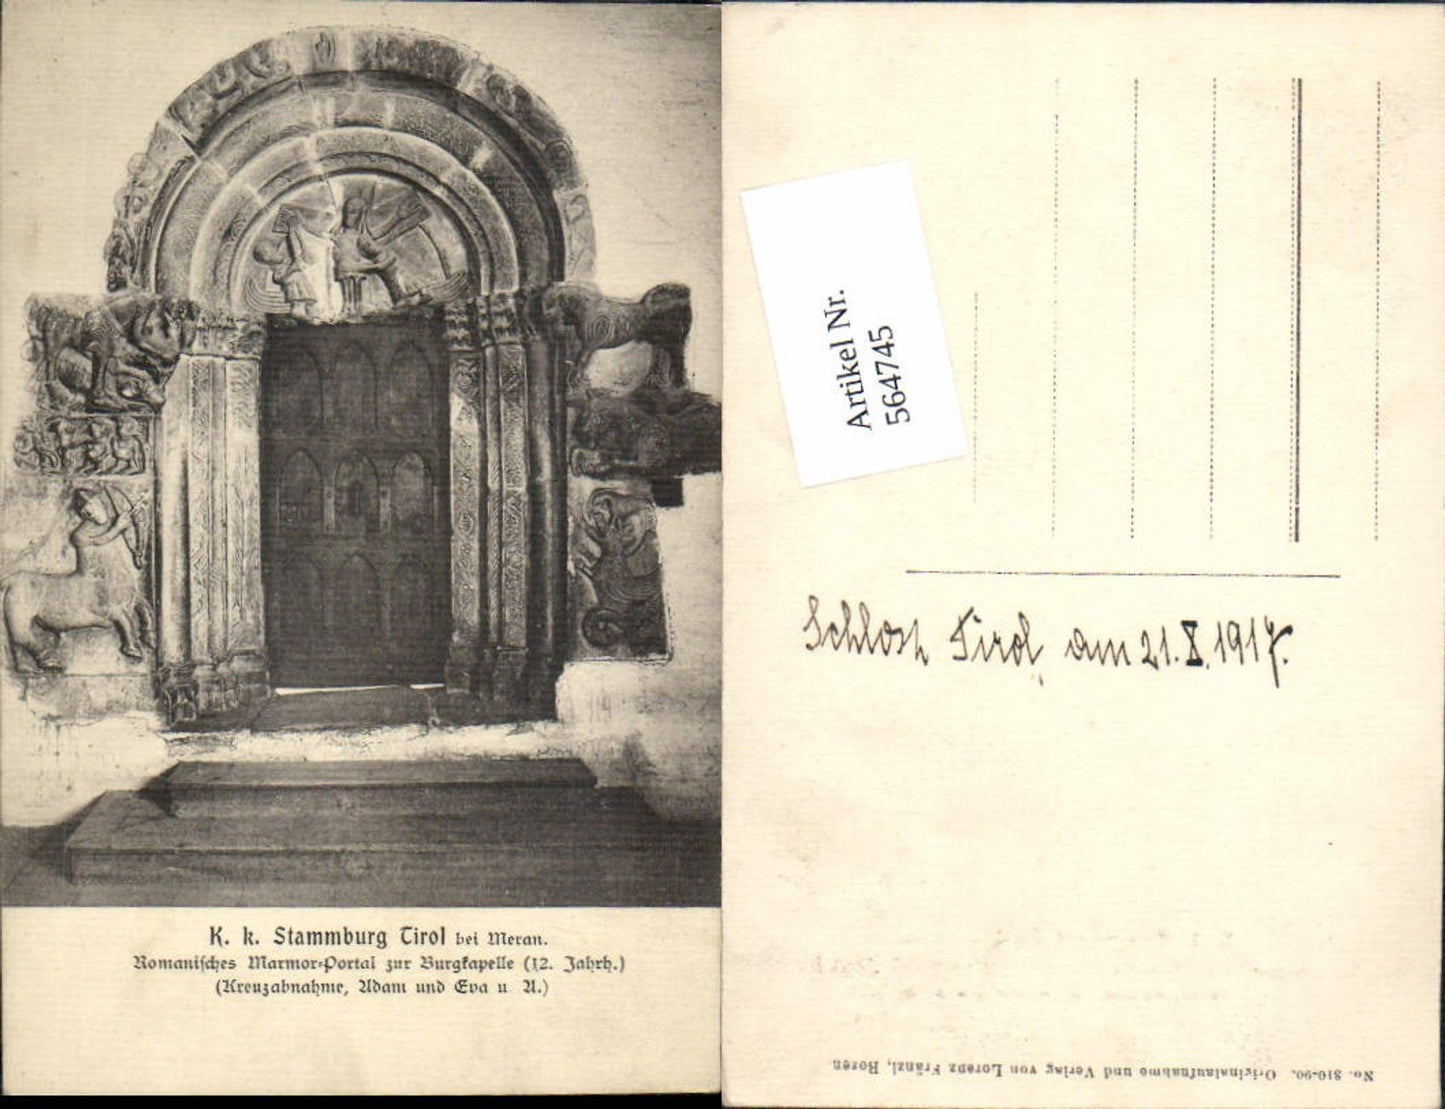 K. k. Stammburg Tirol bei Meran.
Romanisches Marmor-Portal zur Burgkapelle (12. Jahrh.)
(Kreuzabnahme, Adam und Eva u A.)
Artikel Nr.
564745
Schloss Tirol, am 21.X.1917.
No. 810-90. Originalaufnahme und Verlag von Lorenz Fränzl, Bozen